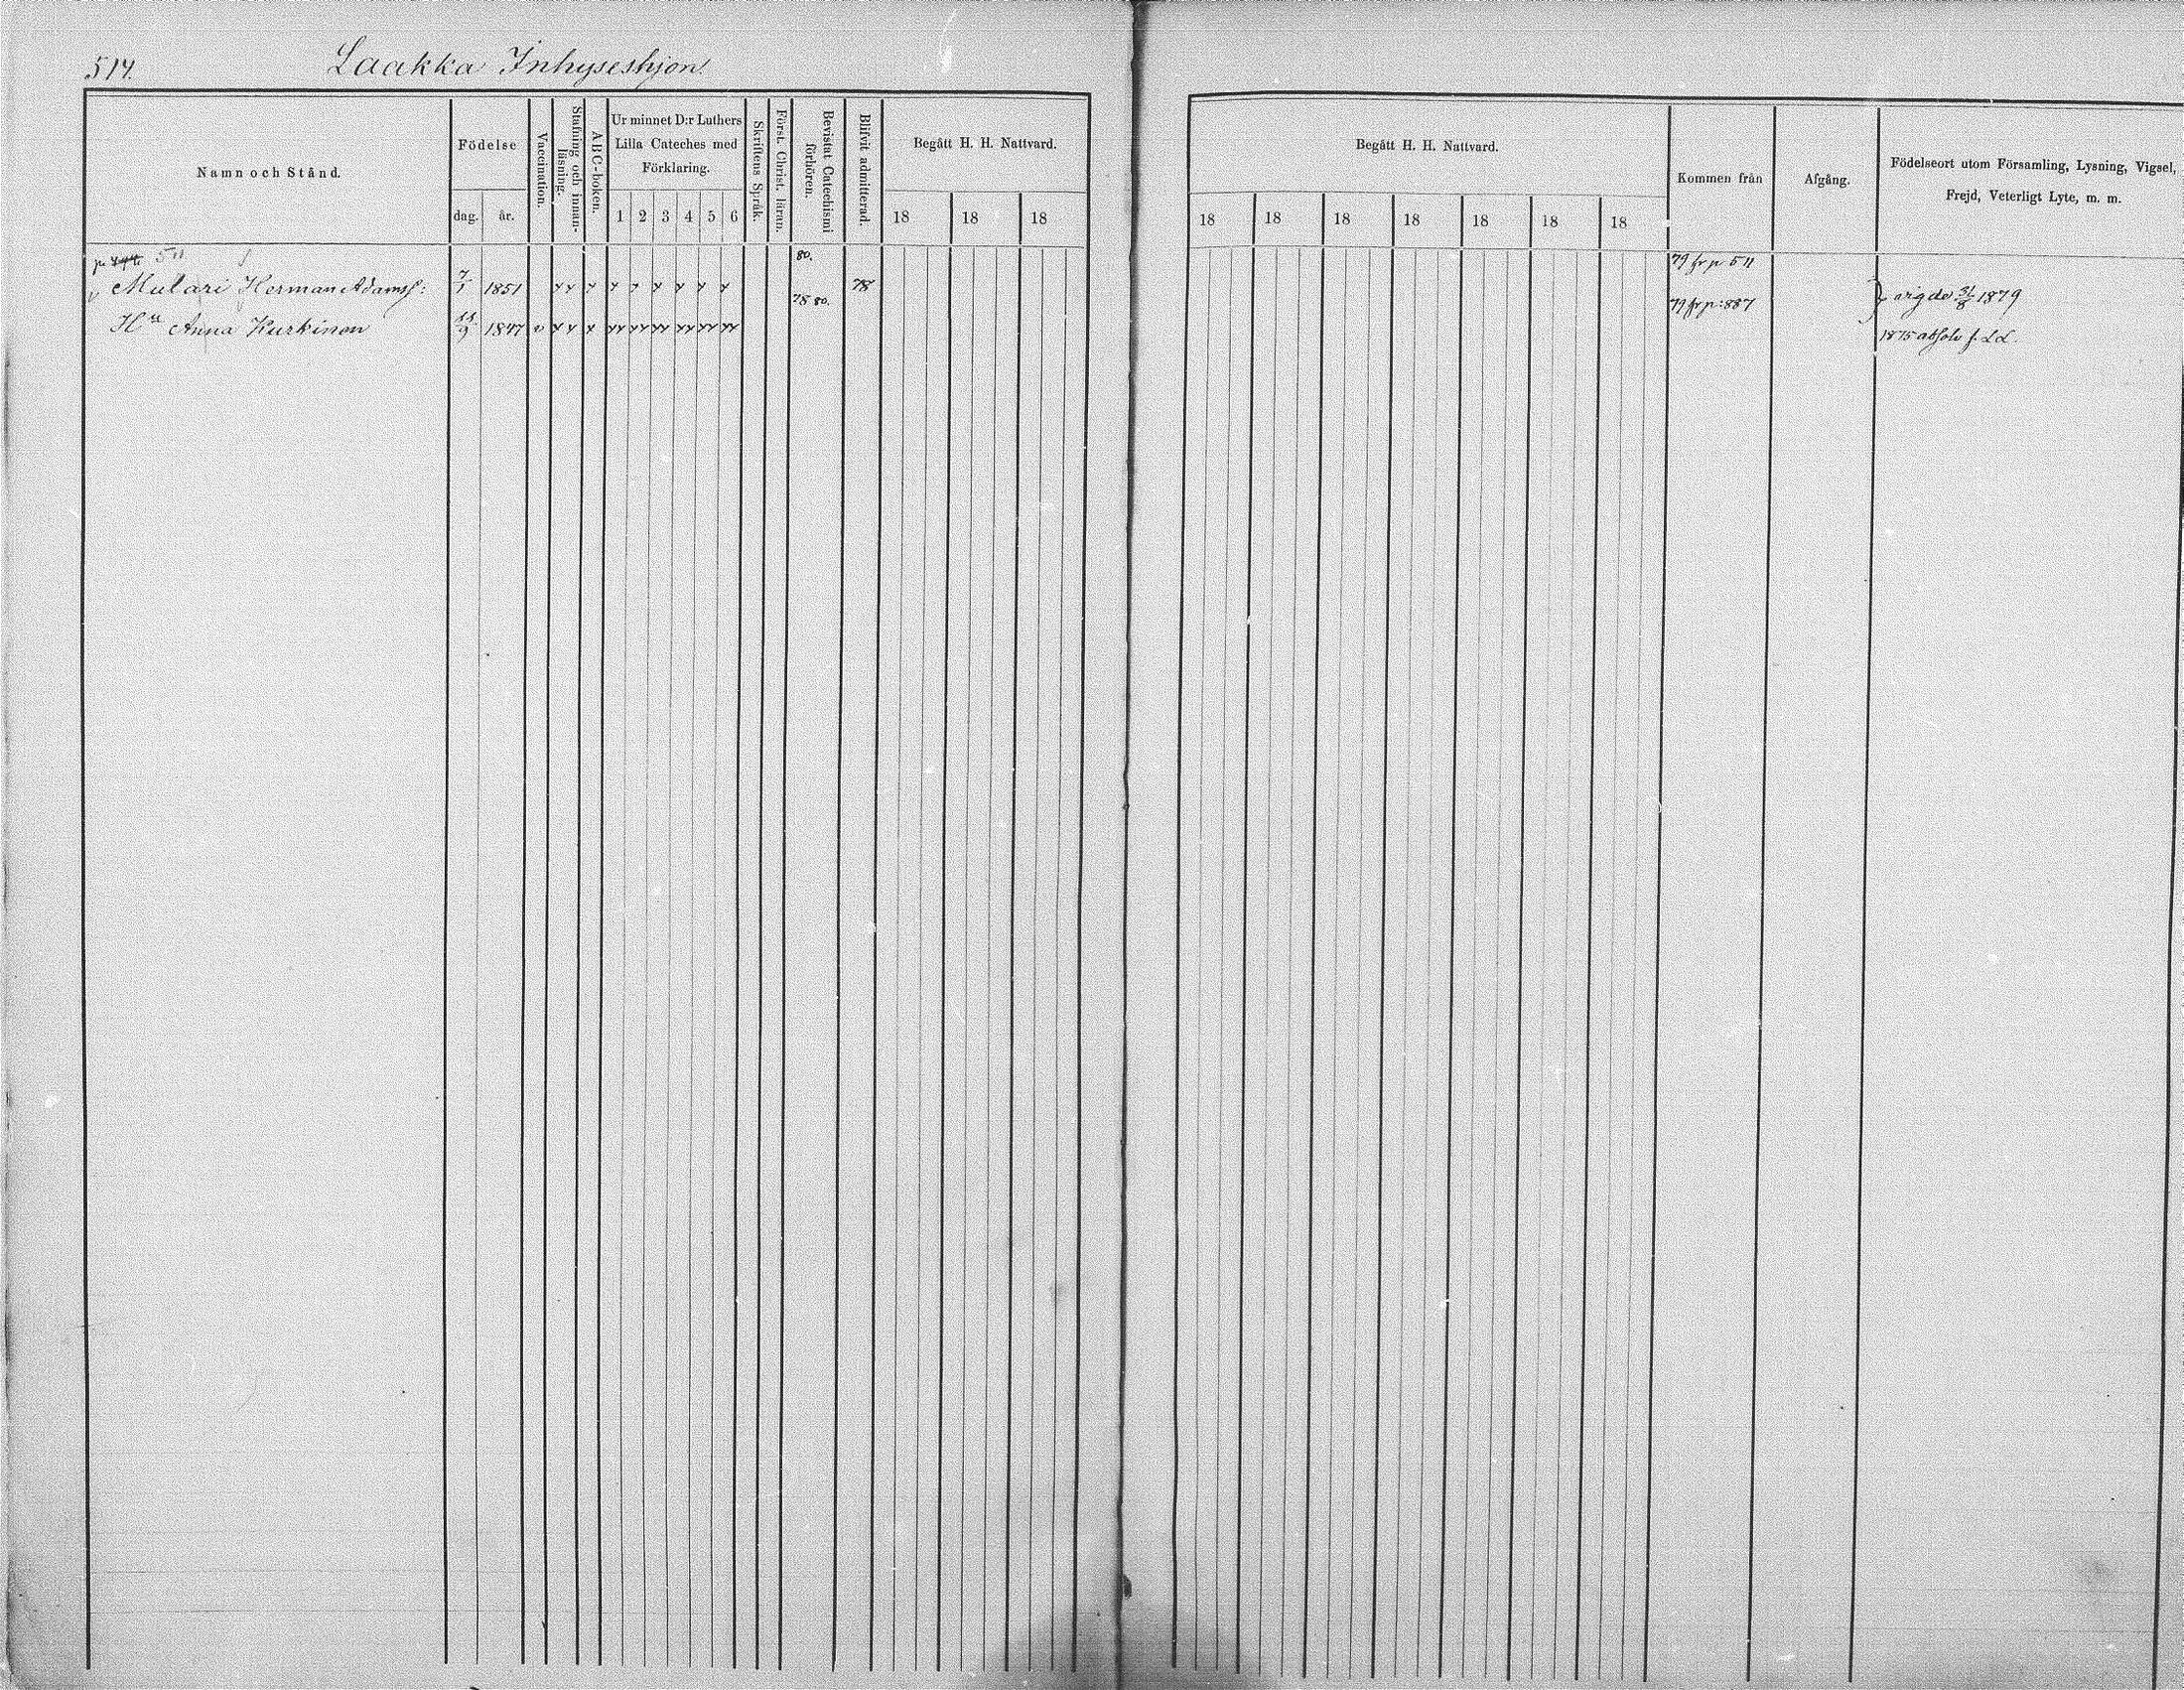 514.
Laakka Inhyseshjon.
Namn och Stånd.
Födelse
dag. år.
Vaccination.
Stafning och innan-läsning.
ABC-boken.
Ur minnet D:r Luthers
Lilla Cateches med
Förklaring.
1 2 3 4 5 6
Skriftens Språk.
Först. Christ. läran.
Bevistat Catechismi förhören.
Blifvit admitterad.
Begått H. H. Nattvard.
18 18 18
Begått H. H. Nattvard.
18 18 18 18 18 18 18
Kommen från
Afgång.
Födelseort utom Församling, Lysning, Vigsel,
Frejd, Veterligt Lyte, m. m.
p. 511 80. 79 fr p 511
v Mulari Herman Adamsf: 7/1 1851 x x x x x x x x x 78 vigde 31/8 1879
78 80. 79 fr p: 887
Hu Anna Kurkinen 11/9 1847 v x x x xx xx xx xx xx xx 1875 absolv f. L.L.